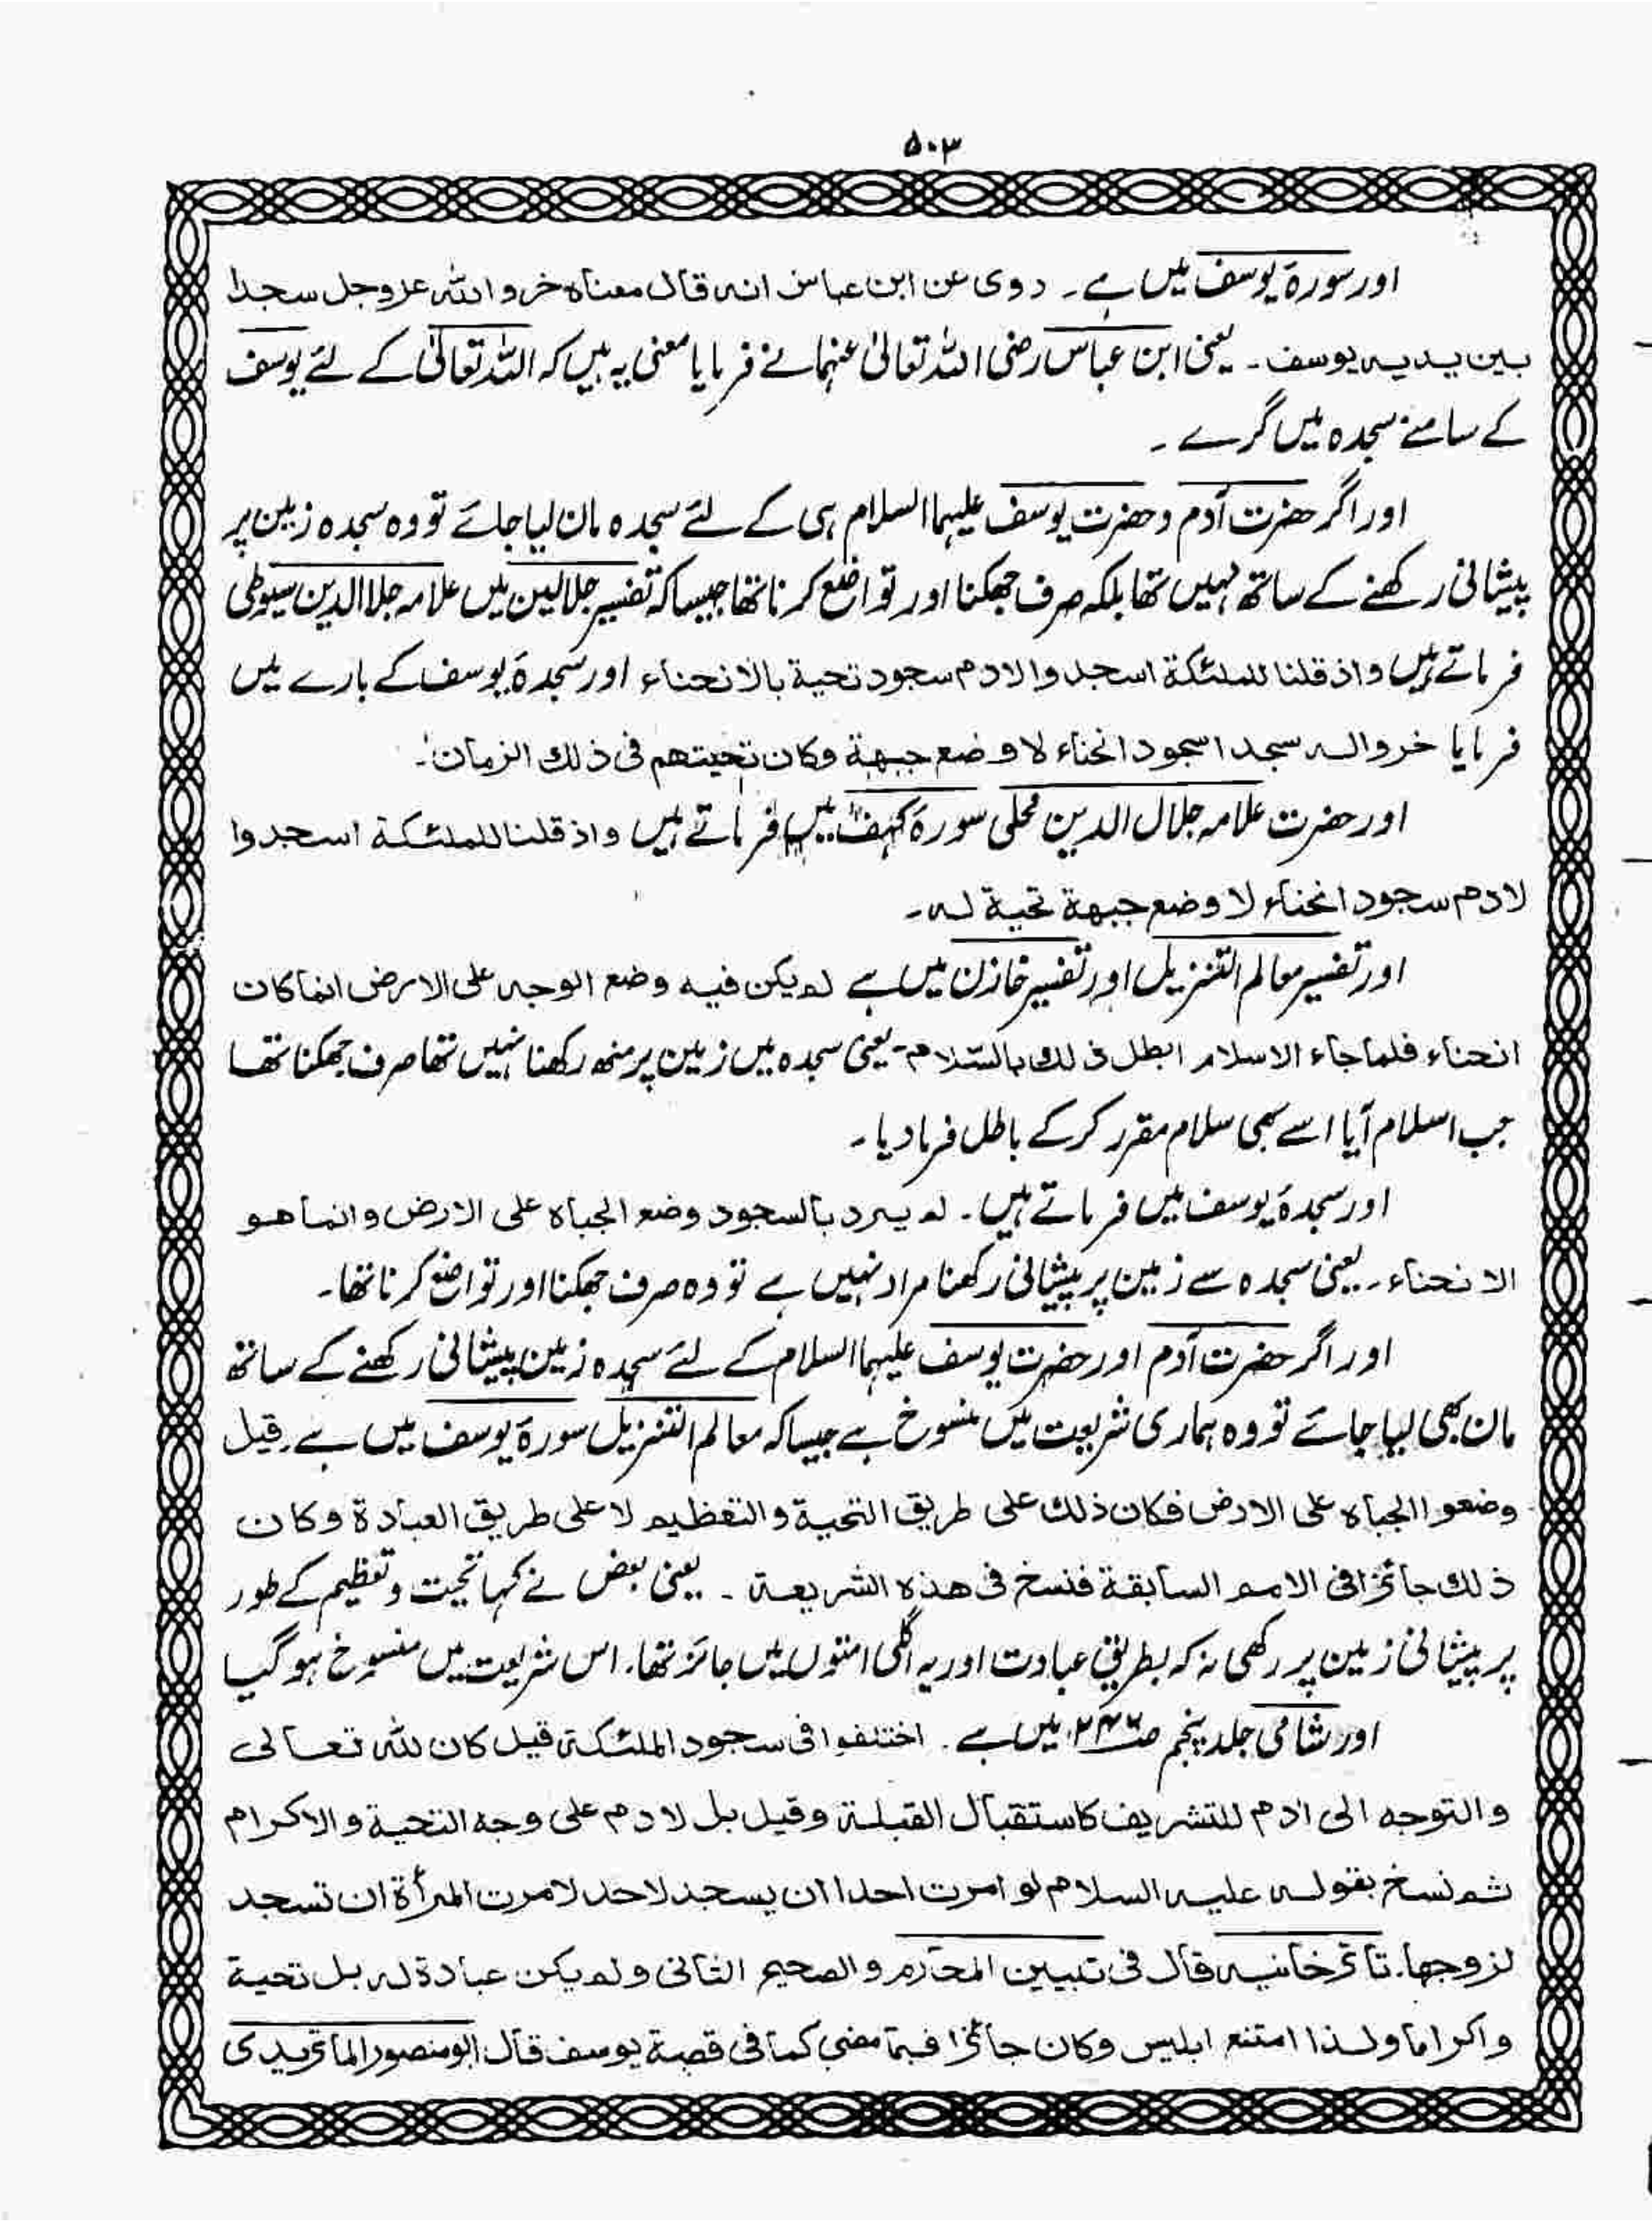 ۵۰۳
اور سورۂ یوسف میں ہے۔ روی عن ابن عباس انہ قال معناہ خروا للہ عزوجل سجدا
بین یدیہ یوسف۔ یعنی ابن عباس رضی اللہ تعالیٰ عنہما نے فرمایا معنی یہ ہیں کہ اللہ تعالیٰ کے لئے یوسف
کے سامنے سجدہ میں گرے۔
اور اگر حضرت آدم و حضرت یوسف علیہما السلام ہی کے لئے سجدہ مان لیا جائے تو وہ سجدہ زمین پر
پیشانی رکھنے کے ساتھ نہیں تھا بلکہ صرف جھکنا اور تواضع کرنا تھا جیسا کہ تفسیر جلالین میں علامہ جلا الدین سیوطی
فرماتے ہیں واذ قلنا للملئکة اسجدوا لادم سجود تحیة بالانحناء اور سجدۂ یوسف کے بارے میں
فرمایا خروا لہ سجدا سجود انحناء لا وضع جبهة وکان تحیتهم فی ذلك الزمان۔
اور حضرت علامہ جلال الدین محلی سورۂ کہف میں فرماتے ہیں واذ قلنا للملئکة اسجدوا
لادم سجود انحناء لا وضع جبهة تحیة لہ۔
اور تفسیر معالم التنزیل اور تفسیر خازن میں ہے لم یکن فیہ وضع الوجہ علی الارض انما کان
انحناء فلما جاء الاسلام ابطل ذلك بالسّلام۔ یعنی سجدہ میں زمین پر منھ رکھنا نہیں تھا صرف جھکنا تھا
جب اسلام آیا اسے بھی سلام مقرر کرکے باطل فرما دیا۔
اور سجدۂ یوسف میں فرماتے ہیں۔ لم یرد بالسجود وضع الجباہ علی الارض وانما هو
الانحناء۔ یعنی سجدہ سے زمین پر پیشانی رکھنا مراد نہیں ہے تو وہ صرف جھکنا اور تواضع کرنا تھا۔
اور اگر حضرت آدم اور حضرت یوسف علیہما السلام کے لئے سجدہ زمین پیشانی رکھنے کے ساتھ
مان بھی لیا جائے تو وہ ہماری شریعت میں منسوخ ہے جیسا کہ معالم التنزیل سورۂ یوسف میں ہے۔ قیل
وضعوا الجباہ علی الارض فکان ذلك علی طریق التحیة والتعظیم لا علی طریق العبادة وکان
ذلك جائزا فی الامم السابقة فنسخ فی هذہ الشریعة۔ یعنی بعض نے کہا تحیت و تعظیم کے طور
پر پیشانی زمین پر رکھی نہ کہ بطریق عبادت اور یہ اگلی امتوں میں جائز تھا۔ اس شریعت میں منسوخ ہوگیا
اور شامی جلد پنجم ص۲۴۶ میں ہے۔ اختلفوا فی سجود الملئکة قیل کان للہ تعالی
والتوجه الی ادم للتشریف کاستقبال القبلة وقیل بل لادم علی وجه التحیة والاکرام
ثم نسخ بقولہ علیہ السلام لو امرت احدا ان یسجد لاحد لامرت المرأة ان تسجد
لزوجها۔ تاترخانیہ قال فی تبیین المحارم والصحیح الثانی ولم یکن عبادة لہ بل تحیة
واکراما ولذا امتنع ابلیس وکان جائزا فیما مضی کما فی قصة یوسف قال ابو منصور الماتریدی